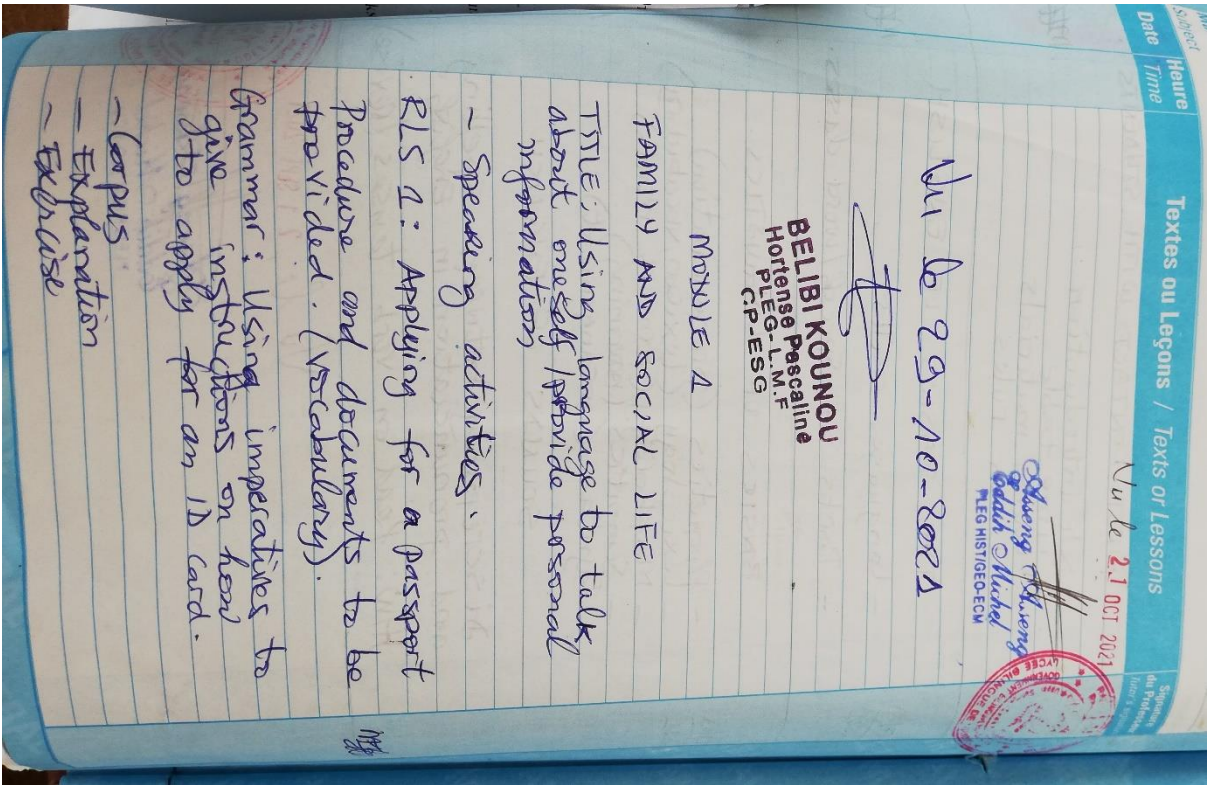 Subject
Heure
Date / Time
Textes ou Leçons / Texts or Lessons
Signature
du Professeur
Vu le 21 OCT 2021
Asseng Asseng
Eddih Michel
PLEG HIST/GEO-ECM
LYCEE BILINGUE DE
GOVERNMENT BILINGUAL
Vu le 29-10-2021
BELIBI KOUNOU
Hortense Pascaline
PLEG-L.M.F
CP-ESG
MODULE 1
FAMILY AND SOCIAL LIFE
TITLE: Using language to talk
about oneself/provide personal
information
- Speaking activities.
RLS 1: Applying for a passport
Procedure and documents to be
provided. (vocabulary).
Grammar: Using imperatives to
give instructions on how
to apply for an ID card.
- Corpus
- Explanation
- Exercise